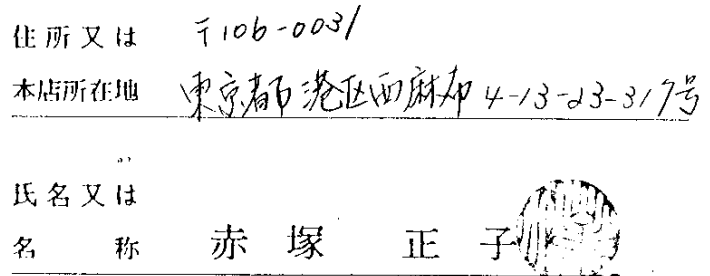 住所又は 〒106-0031
本店所在地 東京都港区西麻布4-13-23-317号
氏名又は
名称 赤塚正子